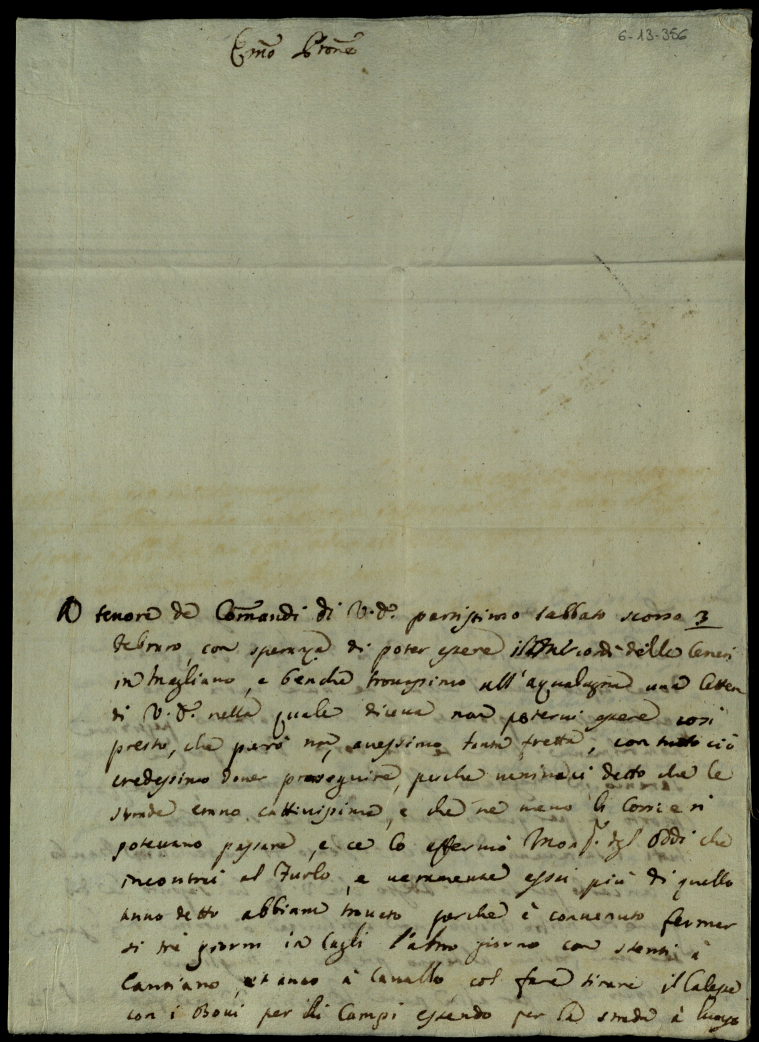 6-13-356
Emo Prone
A tenore de Comandi di V. E. partissimo sabbato scorso 3
Febraro, con speranza di poter essere il Mercordi delle Ceneri
in Magliano, e benche trovassimo all'aqualagna una lettera
di V. E. nella quale diceva non potervi essere cosi
presto, che però non avessimo tanta fretta, con tutto ciò
credessimo dover proseguire, perche detto che le
strade erano cattivissime, e che ne meno li Corrieri
potevano passare, e ce lo affermò Monsr. degl'Oddi che
incontrai al Furlo, e veramente assai più di quello
anno detto abbiam trovato perche è convenuto fermar
si trè giorni in Cagli l'altro giorno con stenti à
Canziano, et anco à Cavallo col fare tirare il Calesse
con i Bovi per li Campi essendo per la strada à luogo